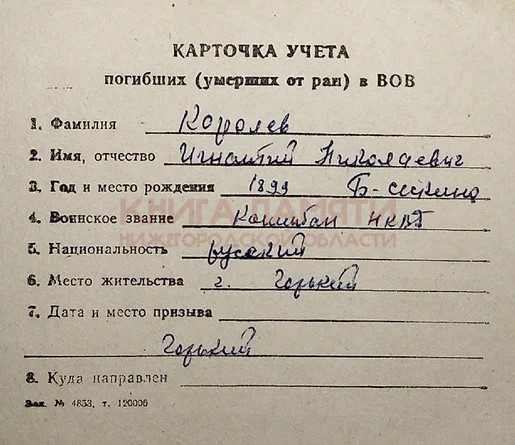 КАРТОЧКА УЧЕТА
погибших (умерших от ран) в ВОВ
1. Фамилия Королев
2. Имя, отчество Игнатий Николаевич
3. Год и место рождения 1899 Б-
КНИГА ПАМЯТИ
4. Воинское звание НКВД
НИЖЕГОРОДСКОЙ ОБЛАСТИ
5. Национальность русский
6. Место жительства г. Горький
7. Дата и место призыва
Горький
8. Куда направлен
Зак. № 4853, т. 120000